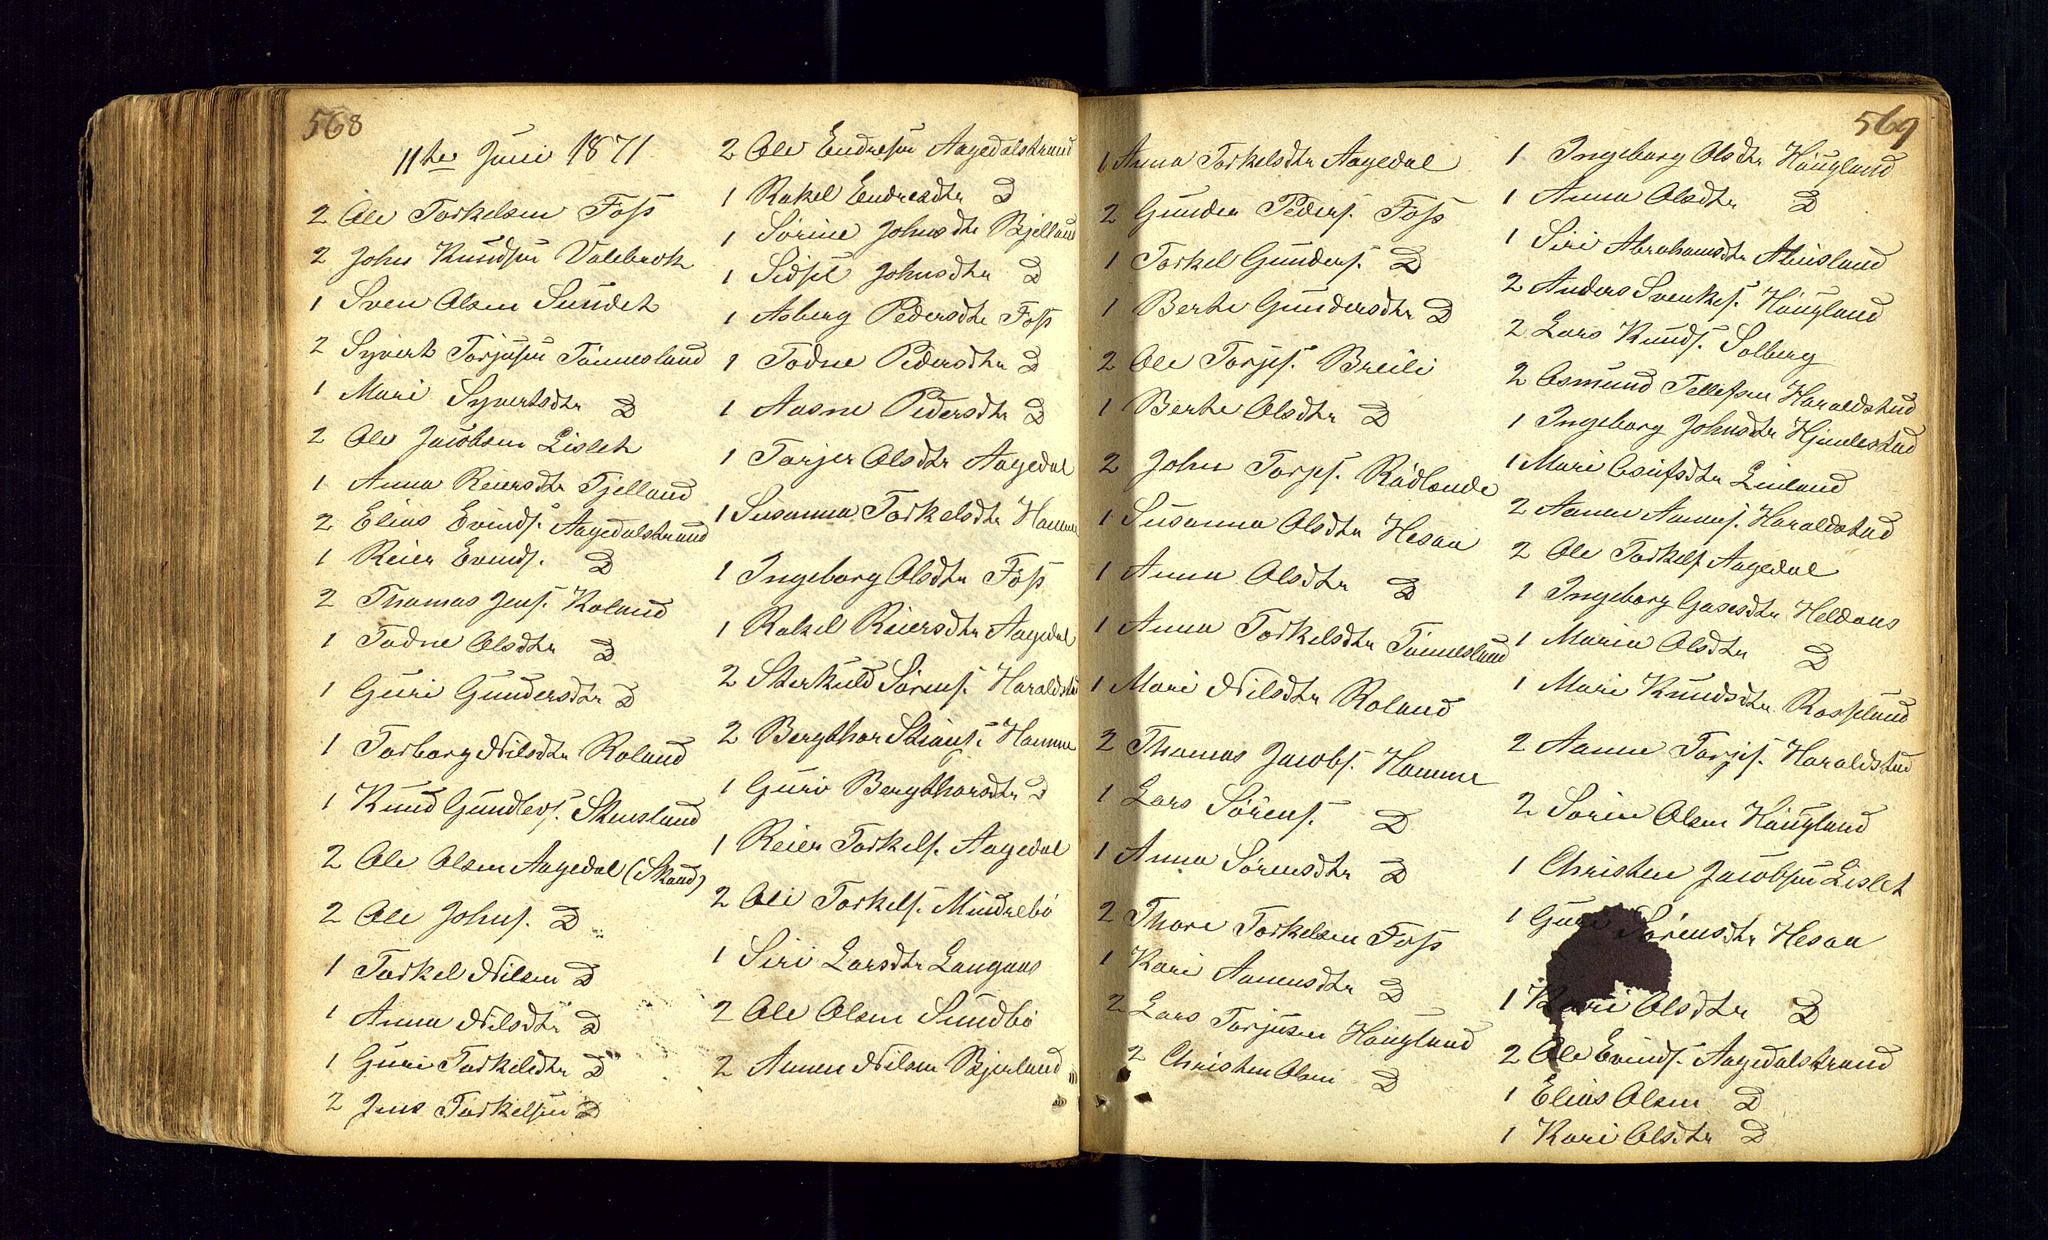 568
11te Juni 1871
2 Ole Torkelsen Foss
2 John Knudsen Valebrok
1 Sven Olsen Sundet
2 Syvert Torjusen Tønnesland
1 Mari Syvertsdtr D
2 Ole Jacobsen Lislet
1 Anna Reiersdtr Fjelland
2 Elias Evinds. Aagedalstrand
1 Reier Evinds. D
2 Thomas Jens. Roland
1 Todne Olsdtr D
1 Guri Gundersdtr D
1 Torborg Nilsdtr Roland
1 Knud Gundlevs. Stensland
2 Ole Olsen Aagedal (Skaad)
2 Ole Johns. D
1 Torkel Nilsen D
1 Anna Nilsdtr D
1 Guri Torkelsdtr D
2 Jens Torkelsen D
2 Ole Endresen Aagedalstrand
1 Rakel Endresdtr D
1 Sørine Johnsdtr Bjelland
1 Sidsel Johnsdtr D
1 Asberg Pedersdtr Foss
1 Todne Pedersdtr D
1 Aasne Pedersdtr D
1 Torjer Olsdtr Aagedal
1 Susanna Torkelsdtr Hamme
1 Ingeborg Olsdtr Foss
1 Rakel Reiersdtr Aagedal
2 Sterkuld Sørens. Haraldstad
2 Bergthor Stians. Hamme
1 Guro Bergthorsdtr D
1 Reier Torkels. Aagedal
2 Ole Torkels. Mindrebø
1 Siri Larsdtr Langaas
2 Ole Olsen Sundbø
2 Aanen Nilsen Bjerland
569
1 Anna Torkelsdtr Aagedal
2 Gunder Peders. Foss
1 Torkel Gunders. D
1 Berte Gundersdtr D
2 Ole Torjes. Breili
1 Berte Olsdtr D
2 John Torjes. Rødlende
1 Susanna Olsdtr Hesaa
1 Anna Olsdtr D
1 Anna Torkelsdtr Tønnesland
1 Mari Nilsdtr Roland
2 Thomas Jacobs. Hamme
1 Lars Sørens. D
1 Anna Sørensdtr D
2 Thore Torkelsen Foss
1 Kari Aanensdtr D
2 Lars Torjusen Høugland
2 Christen Olsen D
1 Ingeborg Olsdtr Høugland
1 Anna Olsdtr D
1 Siri Abrahamsdtr Abusland
2 Anders Svenkes. Høugland
2 Lars Knuds. Solberg
2 Osmund Tellefsen Haraldstad
1 Ingeborg Johnsdtr Hjindestad
1 Mari Osufsdtr Linland
2 Aanen Aanens. Haraldstad
2 Ole Torkels. Aagedal
1 Ingeborg Gasesdtr Heldaas
1 Maria Olsdtr D
1 Mari Knudsdtr Rosseland
2 Aanen Torjes. Haraldstad
2 Søren Olsen Høugland
1 Christen Jacobsen Lislet
1 Guri Sørensdtr Hesaa
1 Kari Olsdtr D
2 Ole Evinds. Aagedalstrand
1 Elias Olsen D
1 Kari Olsdtr D